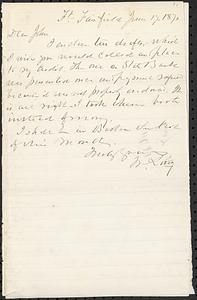 Ft. Fairfield June 17, 187
Dear John
I enclose two drafts, which
I wish you would collect and place
to my credit. The one on St Bank
was presented once and payment
because it was not properly endorsed. It
is all right I took them both
instead of money.
I shall be in Boston the last
of this month.
Truly yours